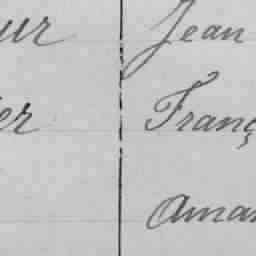 ur Jean
er Franç
Aman